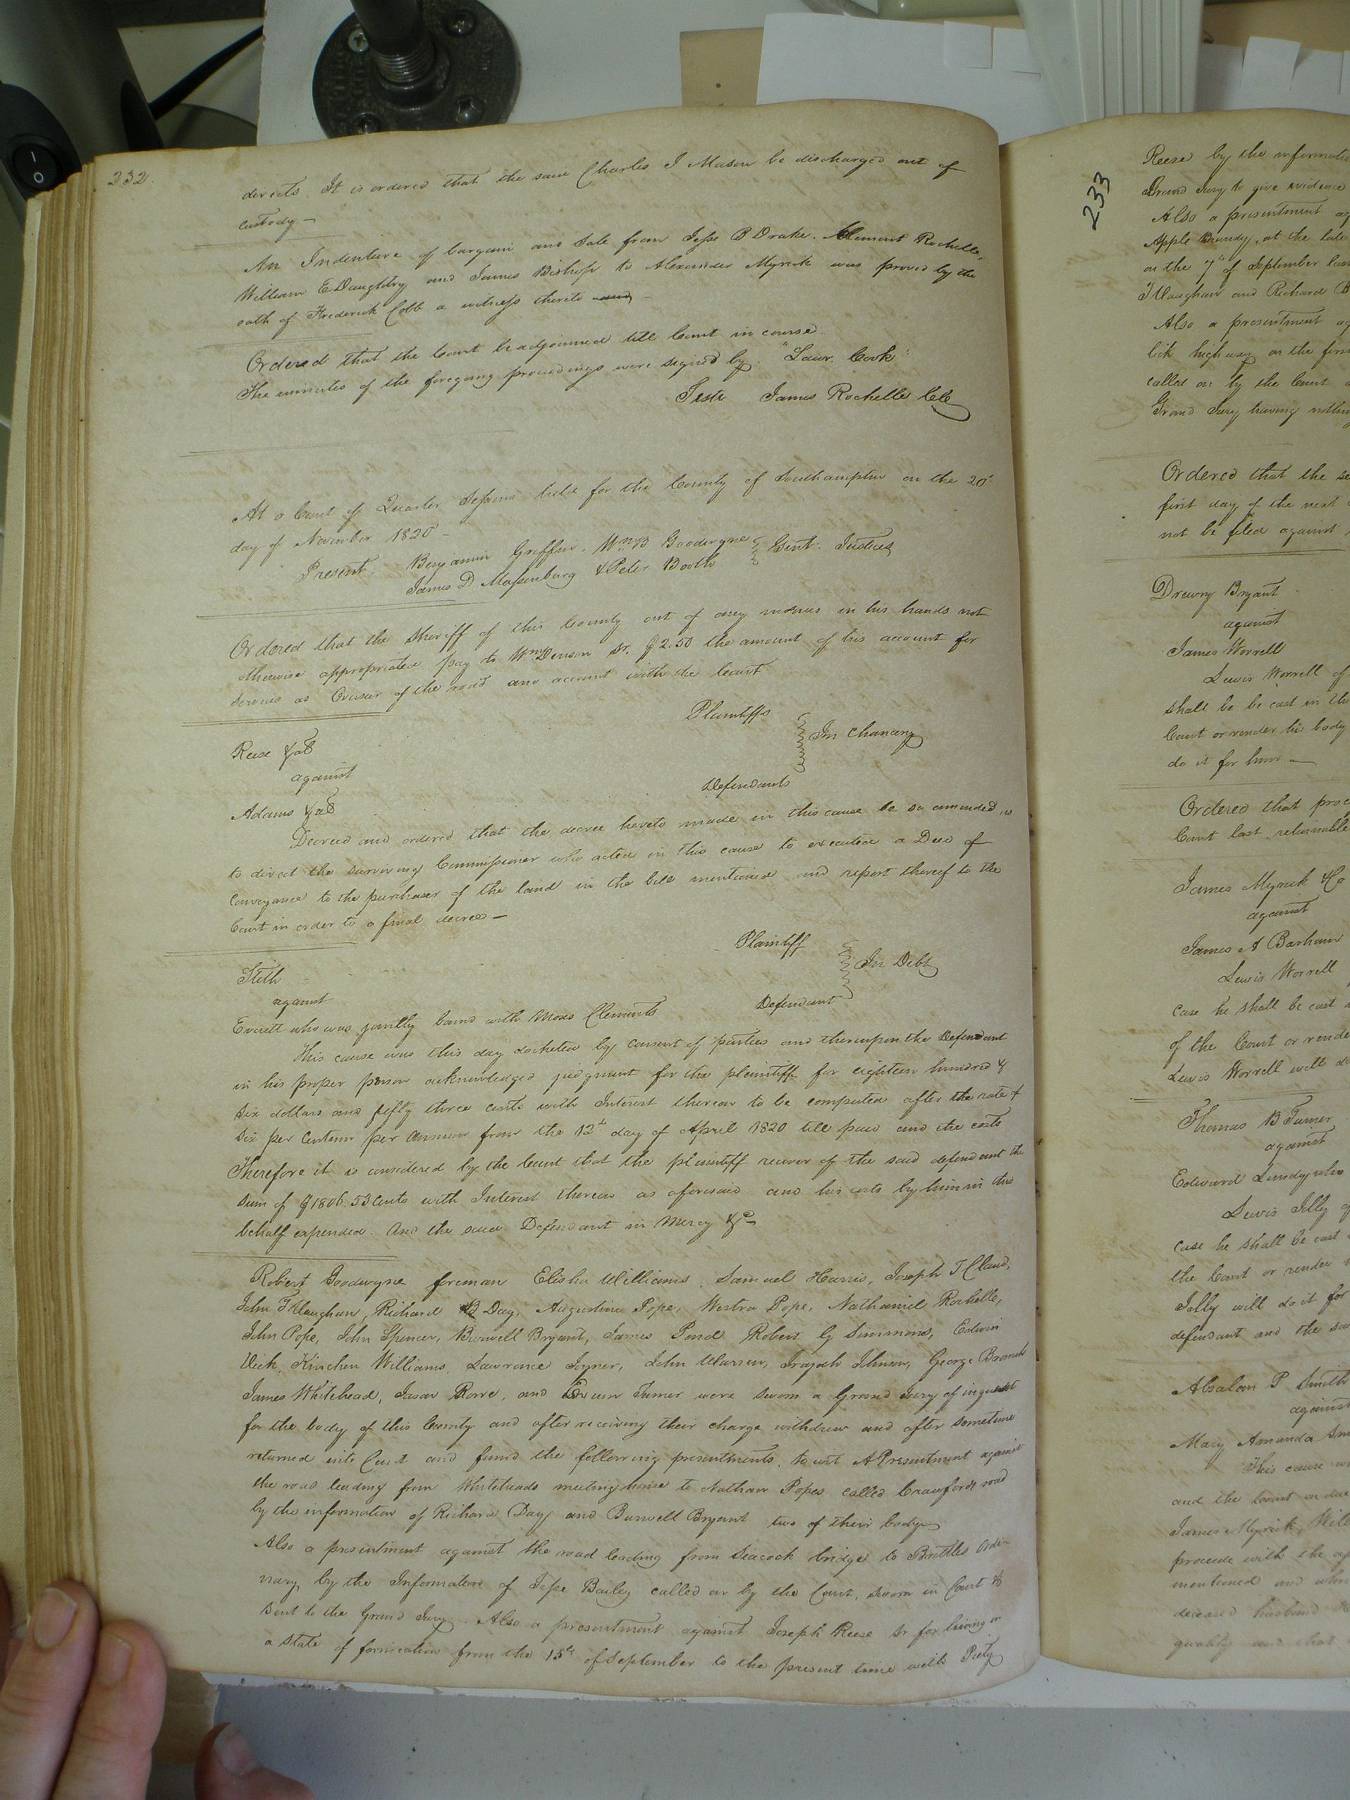 232
directs. It is ordered that the said Charles J Mason be discharged out of
custody —
An Indenture of bargain and Sale from Jesse B Drake, Clement Rochelle,
William E Daughtry and James Bishop to Alexander Myrick was proved by the
oath of Frederick Cobb a witness thereto and —
Ordered that the Court be adjourned till Court in course.
The minutes of the foregoing proceedings were signed by "Lawr. Cook"
Teste James Rochelle
At a Court of Quarter Sessions held for the County of Southampton on the 20th
day of November 1820 —
Present, Benjamin Griffin, Wm B Goodwyne Gent. Justices
James D Massenburg & Peter Booth
Ordered that the Sheriff of this County out of any monies in his hands not
otherwise appropriated pay to Wm Denson Sr. $2.50 the amount of his account for
services as of the road and account with the Court
Plaintiffs
Reese & al
against In Chancery
Defendants
Adams & al
Decreed and ordered that the decree hereto made in this cause be so amended as
to direct the surviving Commissioner who acted in this cause to execute a Deed of
Conveyance to the purchaser of the land in the bill mentioned and report thereof to the
Court in order to a final decree —
Plaintiff
Stith
against In Debt
Everett who was jointly bound with Moses Clements Defendant
This cause was this day docketed by consent of parties and thereupon the Defendant
in his proper person acknowledged judgment for the plaintiff for eighteen hundred &
six dollars and fifty three cents with Interest thereon to be computed after the rate of
six per Centum per annum from the 13th day of April 1820 till paid and the costs
Therefore it is considered by the Court that the plaintiff recover of the said defendant the
sum of $1806.53 Cents with Interest thereon as aforesaid and his costs by him in this
behalf expended. And the said Defendant in Mercy &c —
Robert Goodwyne foreman Elisha Williams, Samuel Harris, Joseph T Claud,
John T Vaughan, Richard B Day, Augustine Pope, Westra Pope, Nathaniel Rochelle,
John Pope, John Spencer, Burwell Bryant, James Pond Robert G Simmons, Edwin
Vick, Kinchen Williams, Lawrence Joyner, John Warren, Johnson, George Branch
James Whitehead, Jason Rowe, and Turner were sworn a Grand Jury of inquest
for the body of this County and after receiving their charge withdrew and after sometime
returned into Court and found the following presentments, to wit A Presentment against
the road leading from Whiteheads meeting house to Nathan Popes called Crawfords road
by the information of Richard Day and Burwell Bryant two of their body
Also a presentment against the road leading from Seacock bridge to Brittles ordi-
nary by the Information of Jesse Bailey called on by the Court, sworn in Court &
sent to the Grand Jury. Also a presentment against Joseph Reese Sr for living in
a state of fornication from the 15th of September to the present time with Piety
233
Reese by the informatio
Grand Jury to give evidence
Also a presentment ag
Apple Brandy, at the late
on the 7th of September las
T Vaughan and Richard B
Also a presentment ag
lick highway on the firs
called on by the Court
Grand Jury having nothi
Ordered that the s
first day of the next
not be filed against
Drewry Bryant
against
James Worrell
Lewis Worrell of
shall be be cast in th
Court or render his body
do it for him —
Ordered that proc
Court last returnable
James Myrick & Co
against
James A Barham
Lewis Worrell
case he shall be cast
of the Court or rende
Lewis Worrell will d
Thomas B Turner
against
Edward Lundy who
Lewis Jelly
case he shall be cast
the Court or render
Jelly will do it for
defendant and the sa
Absalom P Smith
against
Mary Amanda Sm
This cause w
and the Court
James Myrick, Will
proceed with the
mentioned and
deceased husband
quality and that